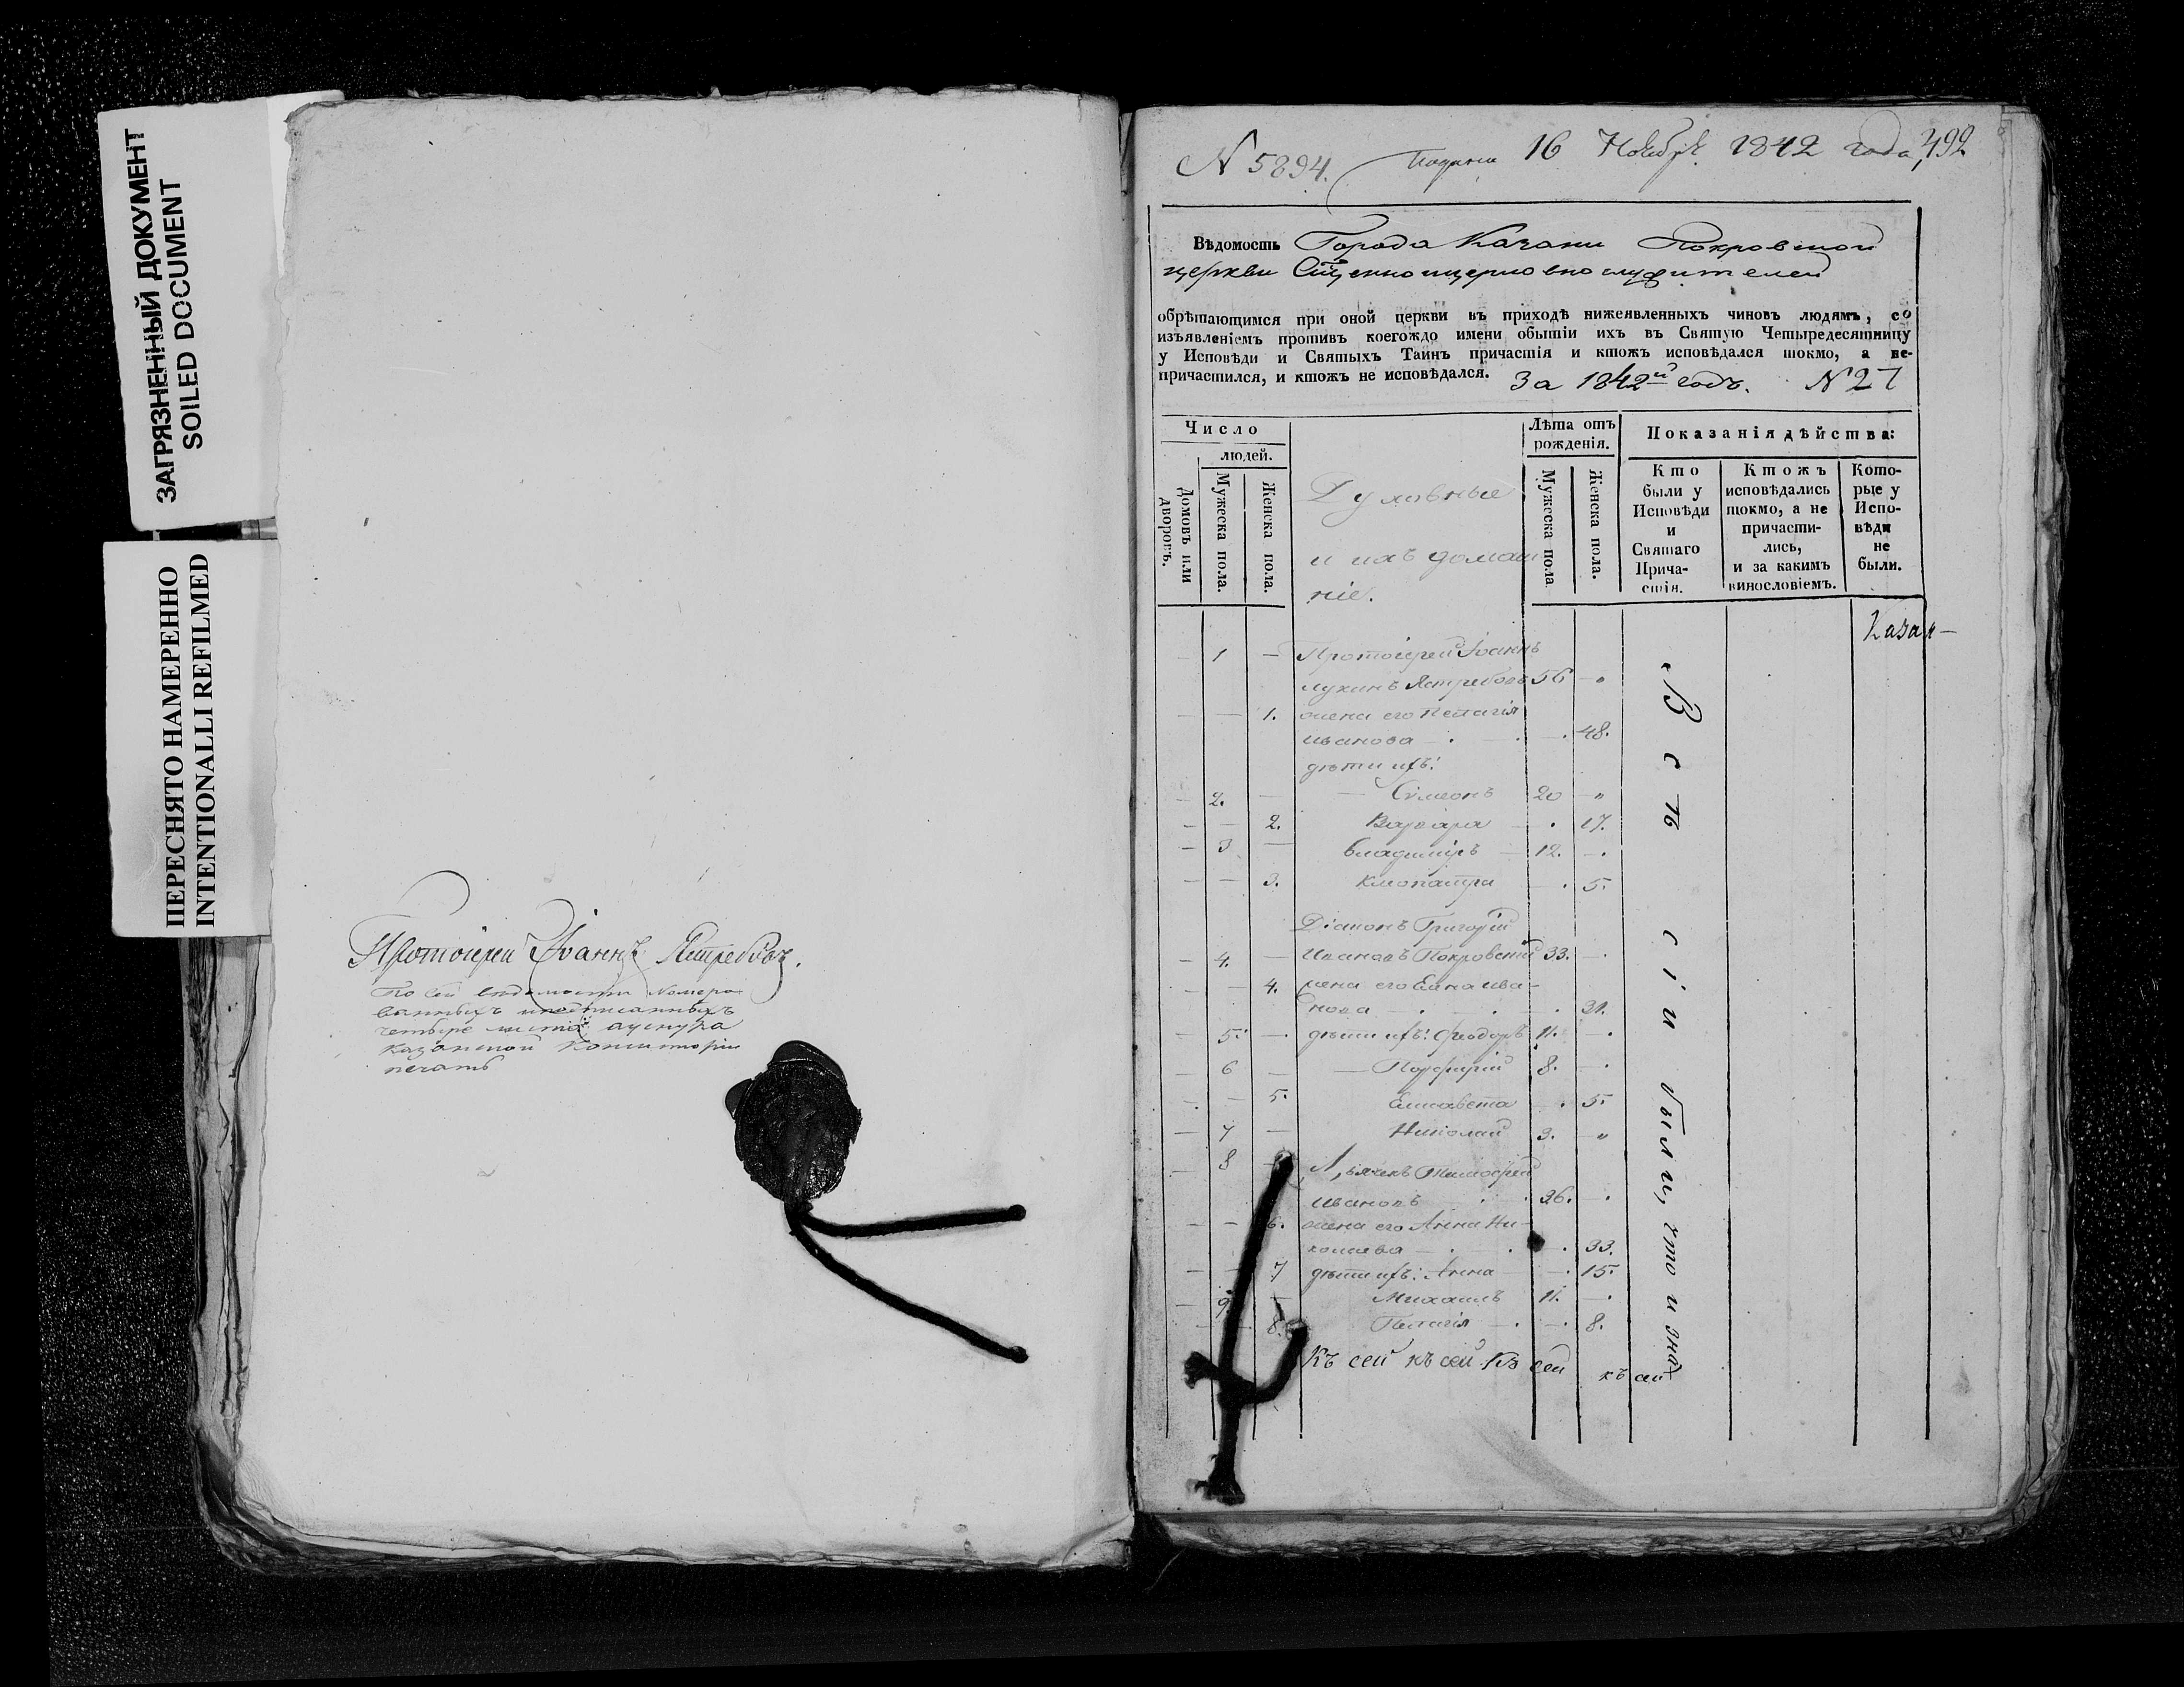 ЗАГРЯЗНЕННЫЙ ДОКУМЕНТ
SOILED DOCUMENT
ПЕРЕСНЯТО НАМЕРЕННО
INTENTIONALLI REFILMED
Протоіерей Іоаннъ Ястребовъ.
По сей ведомости номеро-
ванныхъ
четыре листа
Казанской Консисторіи
печать
N 5894. Подана 16 Ноября 1842 года 492
Вѣдомость Города Казани Покровской
церкви Священноцерковнослужителей
обрѣтающимся при оной церкви въ приходѣ нижеявленныхъ чиновъ людямъ, со
изъявленіемъ противъ коегождо имени обытіи ихъ въ Святую Четыредесятницу
у Исповѣди и Святыхъ Таинъ причастія и ктожъ исповѣдался токмо, а не-
причастился, и ктожъ не исповѣдался. За 1842й годъ. N 27
Число
людей.
Домовъ или дворовъ.
Мужеска пола.
Женска пола.
Духовные
и ихъ домаш
ніе.
Лѣта отъ
рожденія.
Мужеска пола
Женска пола.
Показанія дѣйства:
Кто
были у
Исповѣди
и
Святаго
Прича-
стія.
Ктожъ
исповѣдались
токмо, а не
причасти-
лись,
и за какимъ
винословіемъ.
Кото-
рые у
Испо-
вѣди
не
были.
Казан-
1 — Протоіерей Іоаннъ
Лукинъ Ястребовъ 56 — „
— — 1. жена его Пелагія
Иванова — . — . 48.
дѣти ихъ:
— 2. — — Сѵмеонъ 20 — „
— — 2. Варвара — . 17.
— 3 — Владиміръ — 12. — .
— — 3. Клеопатра — . 5.
Діаконъ Григорій
— 4. — Ивановъ Покровскій 33. — .
— — 4. жена его Елена Ива-
нова — . — . — . 31.
— 5. — дѣти ихъ: Феодоръ 11. — .
— 6 — — Порфирій 8. — .
— — 5. Елисавета — . 5.
— 7 — Николай 3. — „
— 8 — Дьячекъ Тимофей
Ивановъ — . — . 36. — .
— — 6. жена его Анна Ни-
колаева — . — . — . 33.
— — 7 дѣти ихъ: Анна — . 15.
— 9. — Михаилъ 11. — .
— — 8. Пелагія — . — . 8.
Всѣ сіи были, что и зна-
Къ сей къ сей къ сей къ сей